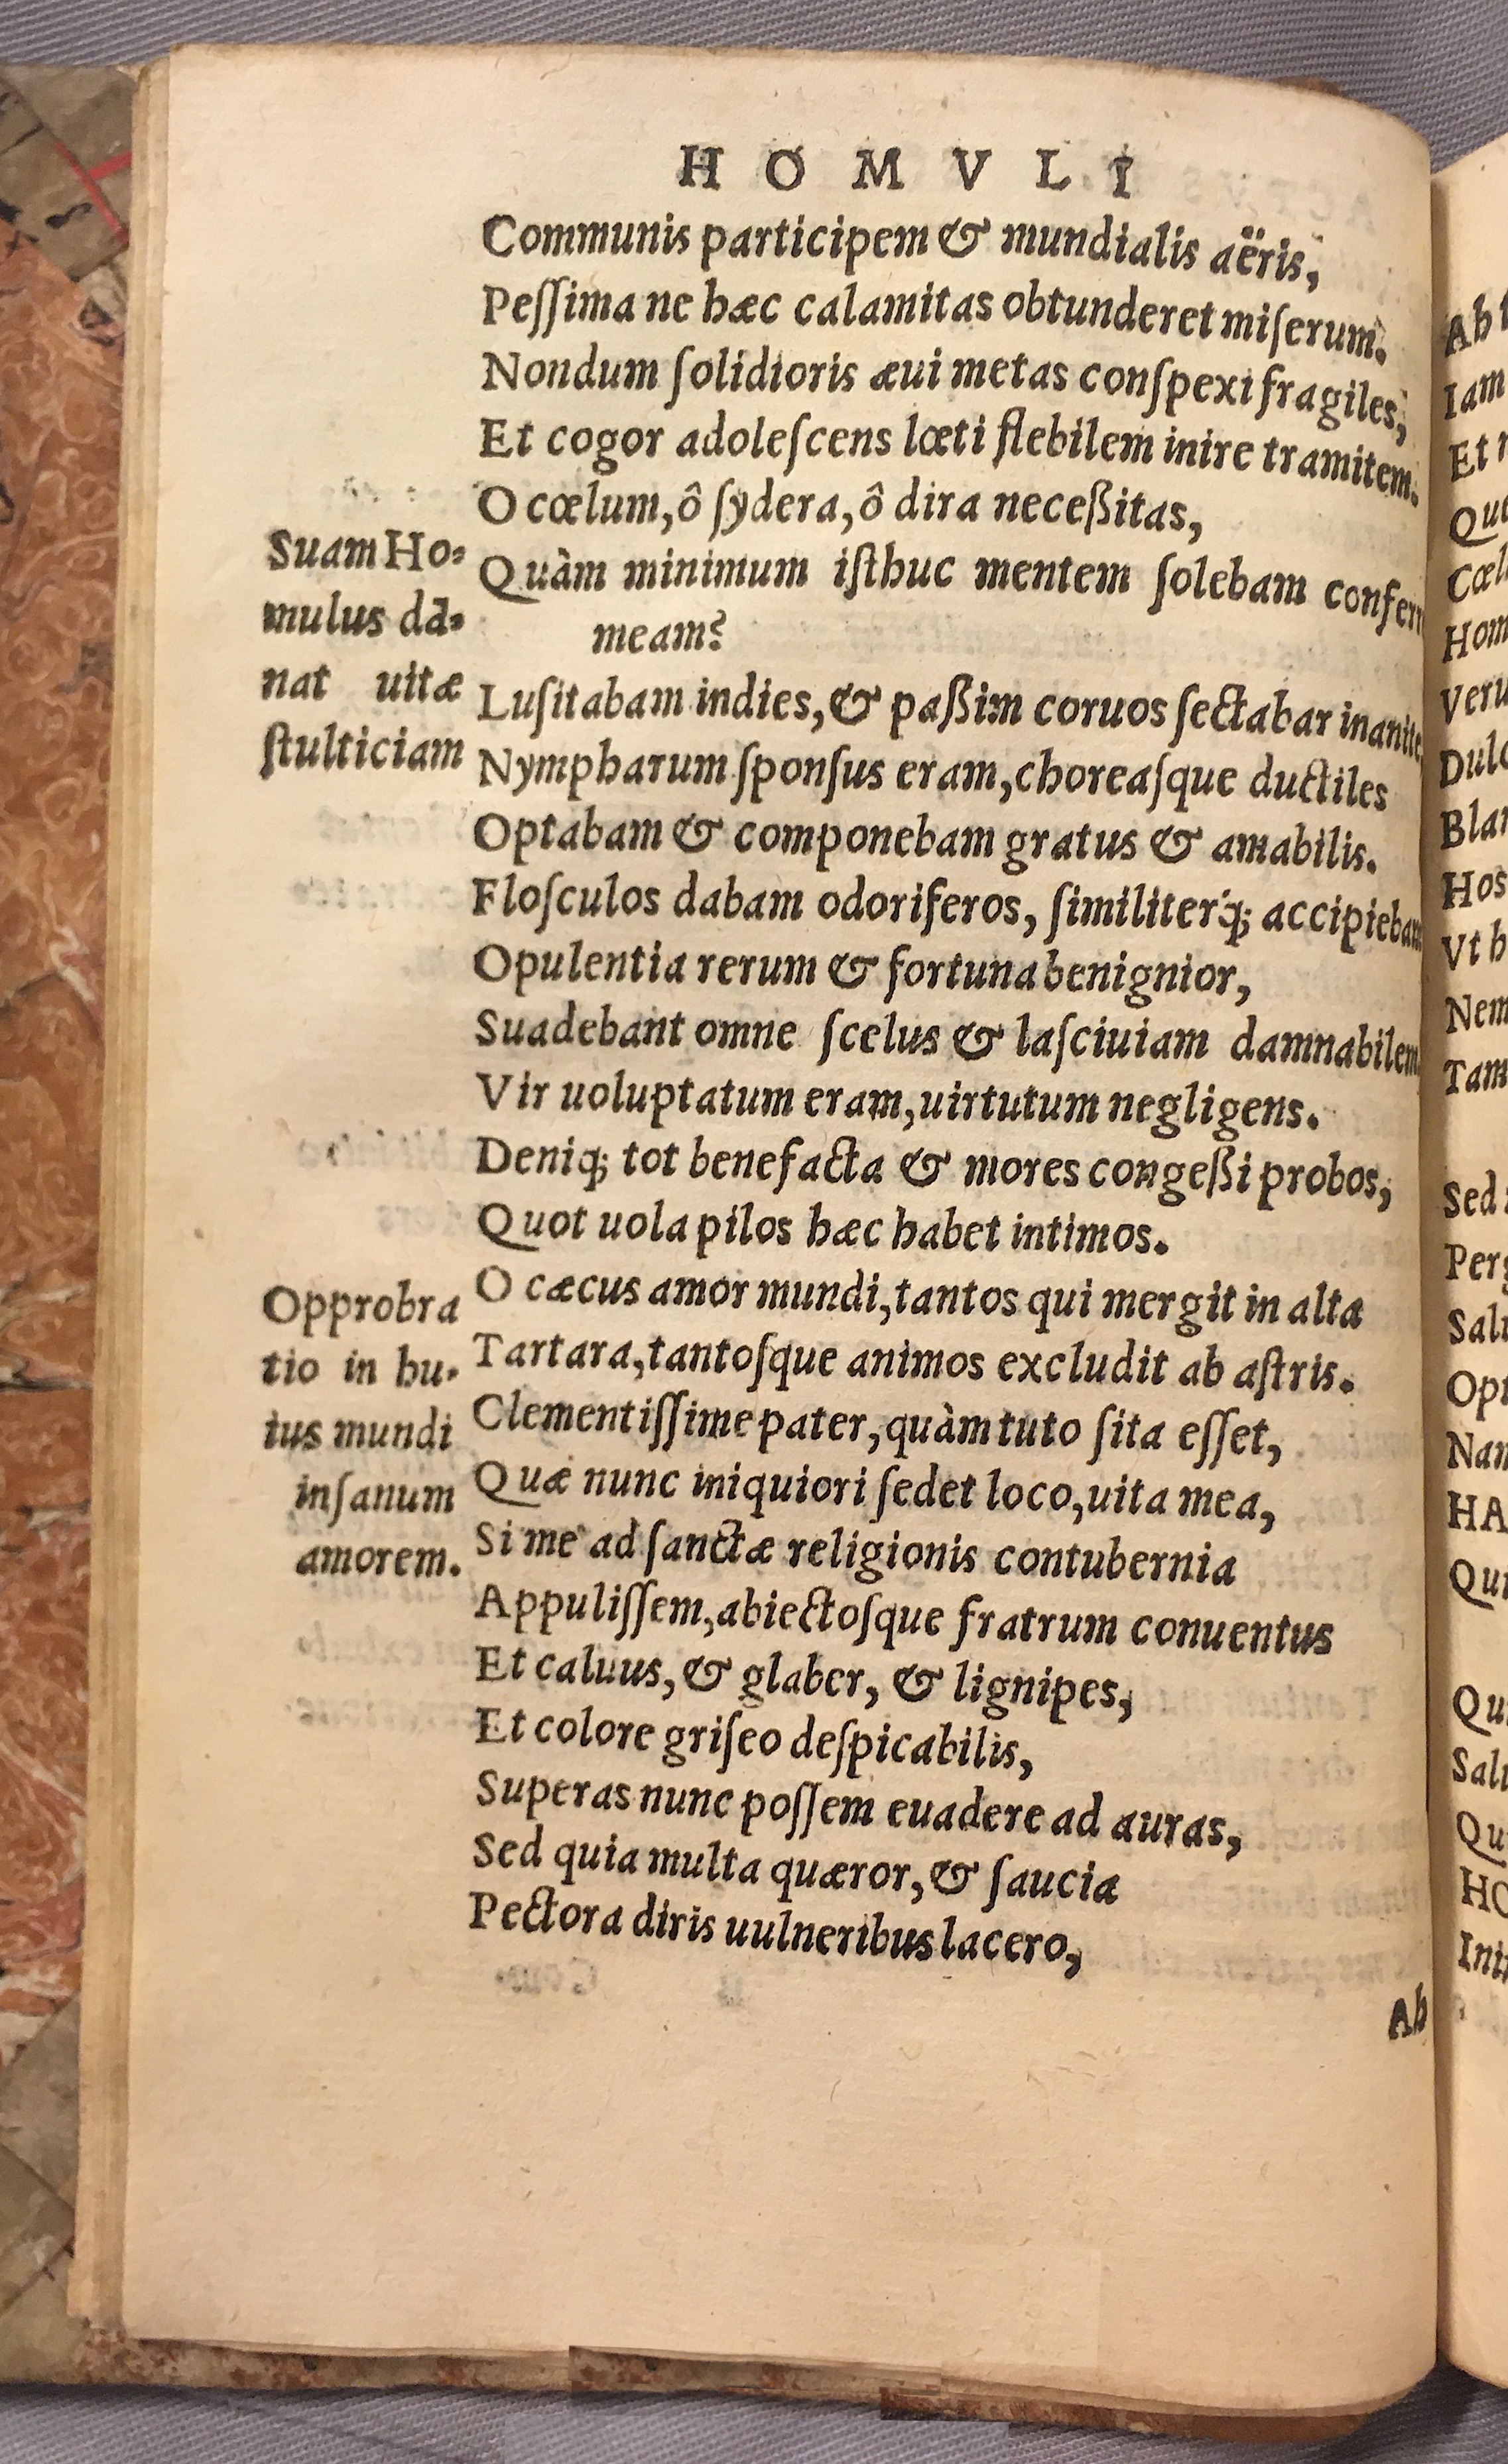 HOMVLI
Communis participem & mundialis aëris,
Peſſima ne hæc calamitas obtunderet miſerum.
Nondum ſolidioris æui metas conſpexi fragiles,
Et cogor adoleſcens lœti flebilem inire tramitem.
O cœlum, ô ſydera, ô dira neceßitas,
Quàm minimum iſthuc mentem ſolebam conferr
meam?
Luſitabam indies, & paßim coruos ſectabar inanite
Nympharum ſponſus eram, choreaſque ductiles
Optabam & componebam gratus & amabilis.
Floſculos dabam odoriferos, ſimiliterq́; accipiebam
Opulentia rerum & fortuna benignior,
Suadebant omne ſcelus & laſciuiam damnabilem
Vir uoluptatum eram, uirtutum negligens.
Deniq; tot benefacta & mores congeßi probos,
Quot uola pilos hæc habet intimos.
O cæcus amor mundi, tantos qui mergit in alta
Tartara, tantoſque animos excludit ab aſtris.
Clementiſſime pater, quàm tuto ſita eſſet,
Quæ nunc iniquiori ſedet loco, uita mea,
Si me ad ſanctæ religionis contubernia
Appuliſſem, abiectoſque fratrum conuentus
Et caluus, & glaber, & lignipes,
Et colore griſeo deſpicabilis,
Superas nunc poſſem euadere ad auras,
Sed quia multa quæror, & ſaucia
Pectora diris uulneribus lacero,
Ab
Suam Ho-
mulus dā-
nat uitæ
ſtulticiam
Opprobra
tio in hu-
ius mundi
inſanum
amorem.
Ab
Iam
Et
Cœl
Hom
Veru
Dulc
Blan
Hos
Vt h
Nem
Tam
Sed
Perg
Salu
Opt
Nam
HA
Qui
Qu
Salu
Qu
HO